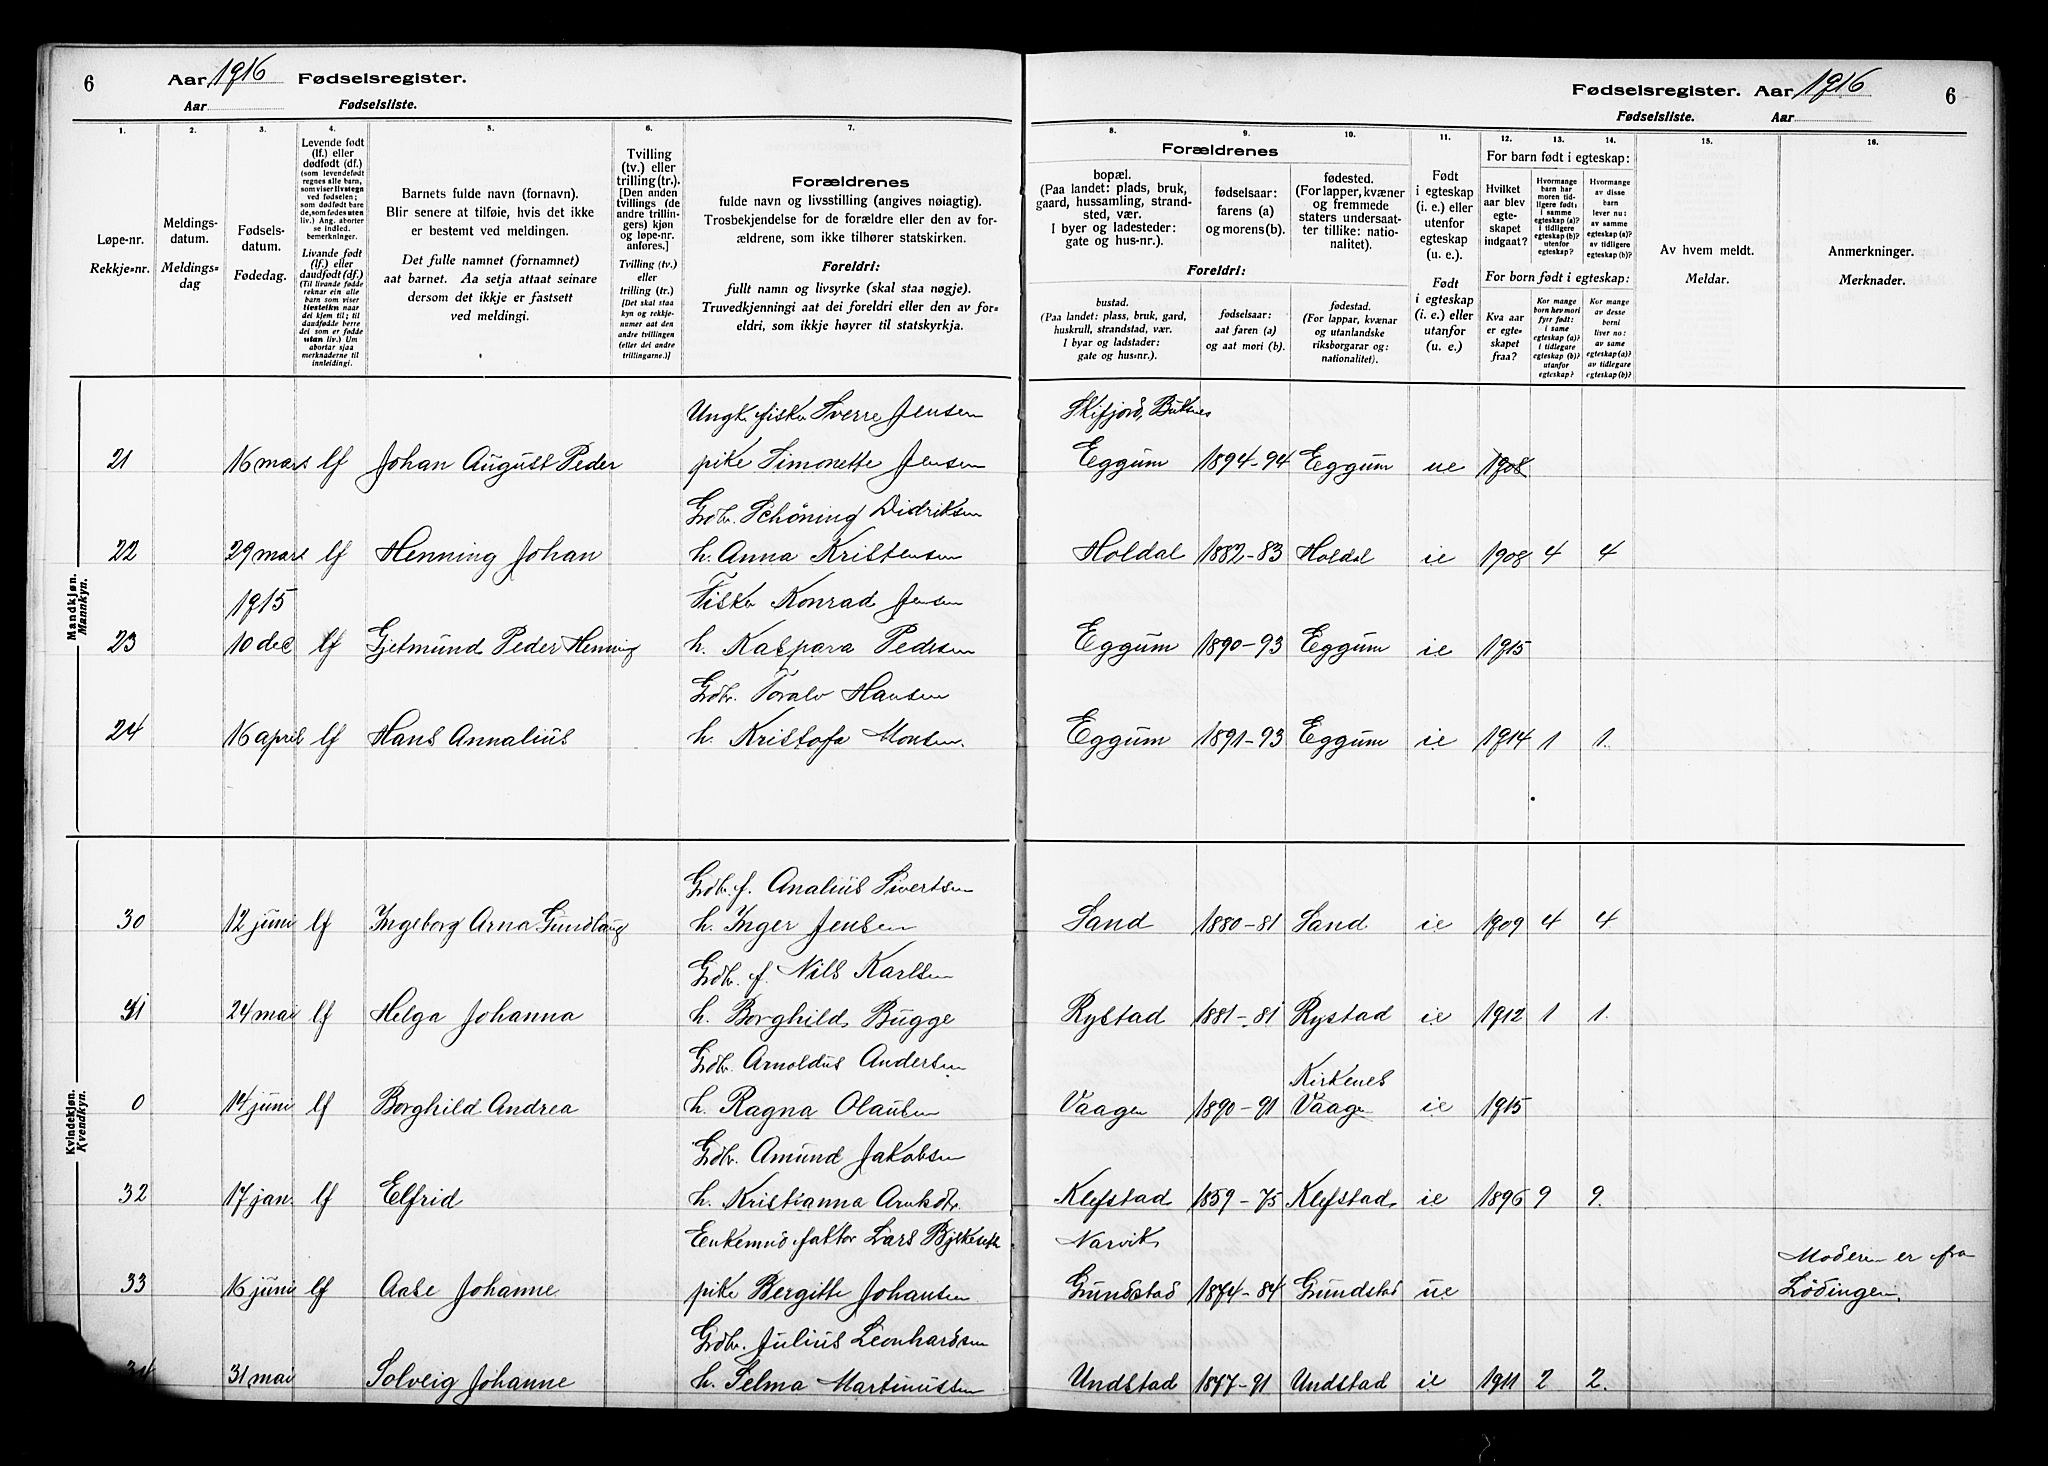 6
Aar 1916 Fødselsregister.
Aar Fødselsliste.
1.
Løpe-nr.
Rekkje-nr.
2.
Meldings-
datum.
Meldings-
dag
3.
Fødsels-
datum.
Fødedag.
4.
Levende født
(lf.) eller
dødfødt (df.)
(som levendefødt
regnes alle barn,
som viser livstegn
ved fødselen;
som dødfødt bare
de, som fødes uten
liv.) Ang. aborter
se indled.
bemerkninger.
Livande født
(lf.) eller
daudfødt (df.)
(Til livande fødde
reknar ein alle
barn som viser
livsteikn naar
dei kjem til; til
daudfødde berre
dei som er fødde
utan liv.) Um
abortar sjaa
merknaderne til
innleidingi.
5.
Barnets fulde navn (fornavn).
Blir senere at tilføie, hvis det ikke
er bestemt ved meldingen.
Det fulle namnet (fornamnet)
aat barnet. Aa setja attaat seinare
dersom det ikkje er fastsett
ved meldingi.
6.
Tvilling
(tv.) eller
trilling (tr.).
[Den anden
tvillings (de
andre trillin-
gers) kjøn
og løpe-nr.
anføres.]
Tvilling (tv.)
eller
trilling (tr.)
[Det skal staa
kyn og rekkje-
numer aat den
andre tvillingen
(eller dei andre
trillingarne.)]
7.
Forældrenes
fulde navn og livsstilling (angives nøiagtig).
Trosbekjendelse for de forældre eller den av for-
ældrene, som ikke tilhører statskirken.
Foreldri:
fullt namn og livsyrke (skal staa nøgje).
Truvedkjenningi aat dei foreldri eller den av for-
eldri, som ikkje høyrer til statskyrkja.
Mandkjøn.
Mannkyn.
Ungk. fisker Sverre Jensen
21 16 mars lf Johan August Peder pike Simonette Jensen
Gdbr. Schöning Didriksen
22 29 mars lf Henning Johan h. Anna Kristensen
1915 Fisker Konrad Jensen
23 10 dec lf Gjetmund Peder Henning h. Kaspara Pedersen
Gdbr. Toralv Hansen
24 16 april lf Hans Annalius h. Kristofa Monsen.
Kvindekjøn.
Kvendkyn.
Gdbr. f. Analius Sivertsen
30 12 juni lf Ingeborg Arna Gundlaug h. Inger Jensen
Gdbr. f. Nils Karlsen
31 24 mai lf Helga Johanna h. Borghild Bugge
Gdbr. Arnoldus Andersen
0 14 juni lf Borghild Andrea h. Ragna Olausen
Gdbr. Amund Jakobsen
32 17 jan. lf Elfrid h. Kristianna
Enkemnd faktor Lars
33 16 juni lf Aase Johanne pike Bergitte Johansen
Gdbr. Julius Leonhardsen
34 31 mai Solveig Johanne h. Selma Martinussen
Fødselsregister. Aar 1916 6
Fødselsliste. Aar
Forældrenes
8.
bopæl.
(Paa landet: plads, bruk,
gaard, hussamling, strand-
sted, vær.
I byer og ladesteder:
gate og hus-nr.).
9.
fødselsaar:
farens (a)
og morens (b).
10.
fødested.
(For lapper, kvæner
og fremmede
staters undersaat-
ter tillike: natio-
nalitet).
Foreldri:
bustad.
(Paa landet: plass, bruk, gard,
huskrull, strandstad, vær.
I byar og ladstader:
gate og hus-nr.).
fødselsaar:
aat faren (a)
og aat mori (b).
fødestad.
(For lappar, kvænar
og utanlandske
riksborgarar og:
nationalitet).
11.
Født
i egteskap
(i. e.) eller
utenfor
egteskap
(u. e.).
Født
i egteskap
(i. e.) eller
utanfor
egteskap
(u. e.)
For barn født i egteskap:
12.
Hvilket
aar blev
egte-
skapet
indgaat?
13.
Hvormange
barn har
moren tid-
ligere født:
i samme
egteskap (a)?
i tidligere
egteskap (b)?
utenfor
egteskap?
14.
Hvormange
av disse
barn
lever nu:
av samme
egteskap (a)?
av tidligere
egteskap (b)?
For born født i egteskap:
Kva aar
er egte-
skapet
fraa?
Kor mange
born hev mori
fyrr født:
i same
egteskap (a)?
i tidlegare
egteskap (b)?
utanfor
egteskap?
Kor mange
av desse
borni
liver no:
av same
egteskap (a)?
av tidlegare
egteskap (b)?
15.
Av hvem meldt.
Meldar.
16.
Anmerkninger.
Merknader.
Skifjord, Buknes
Eggum 1894-94 Eggum ue 1908
Holdal 1882-83 Holdal ie 1908 4 4
Eggum 1890-93 Eggum ie 1915
Eggum 1891-93 Eggum ie 1914 1 1.
Sand 1880-81 Sand ie 1909 4 4
Rystad 1881-81 Rystad ie 1912 1 1.
Kirkenes
Vaagen 1890-91 Vaagen ie 1915
Klefstad 1859-75 Klefstad ie 1896 9 9.
Narvik
Grundstad 1874-84 Grundstad ue Moderen er fra
Lödingen.
Undstad 1877-91 Undstad ie 1911 2 2.